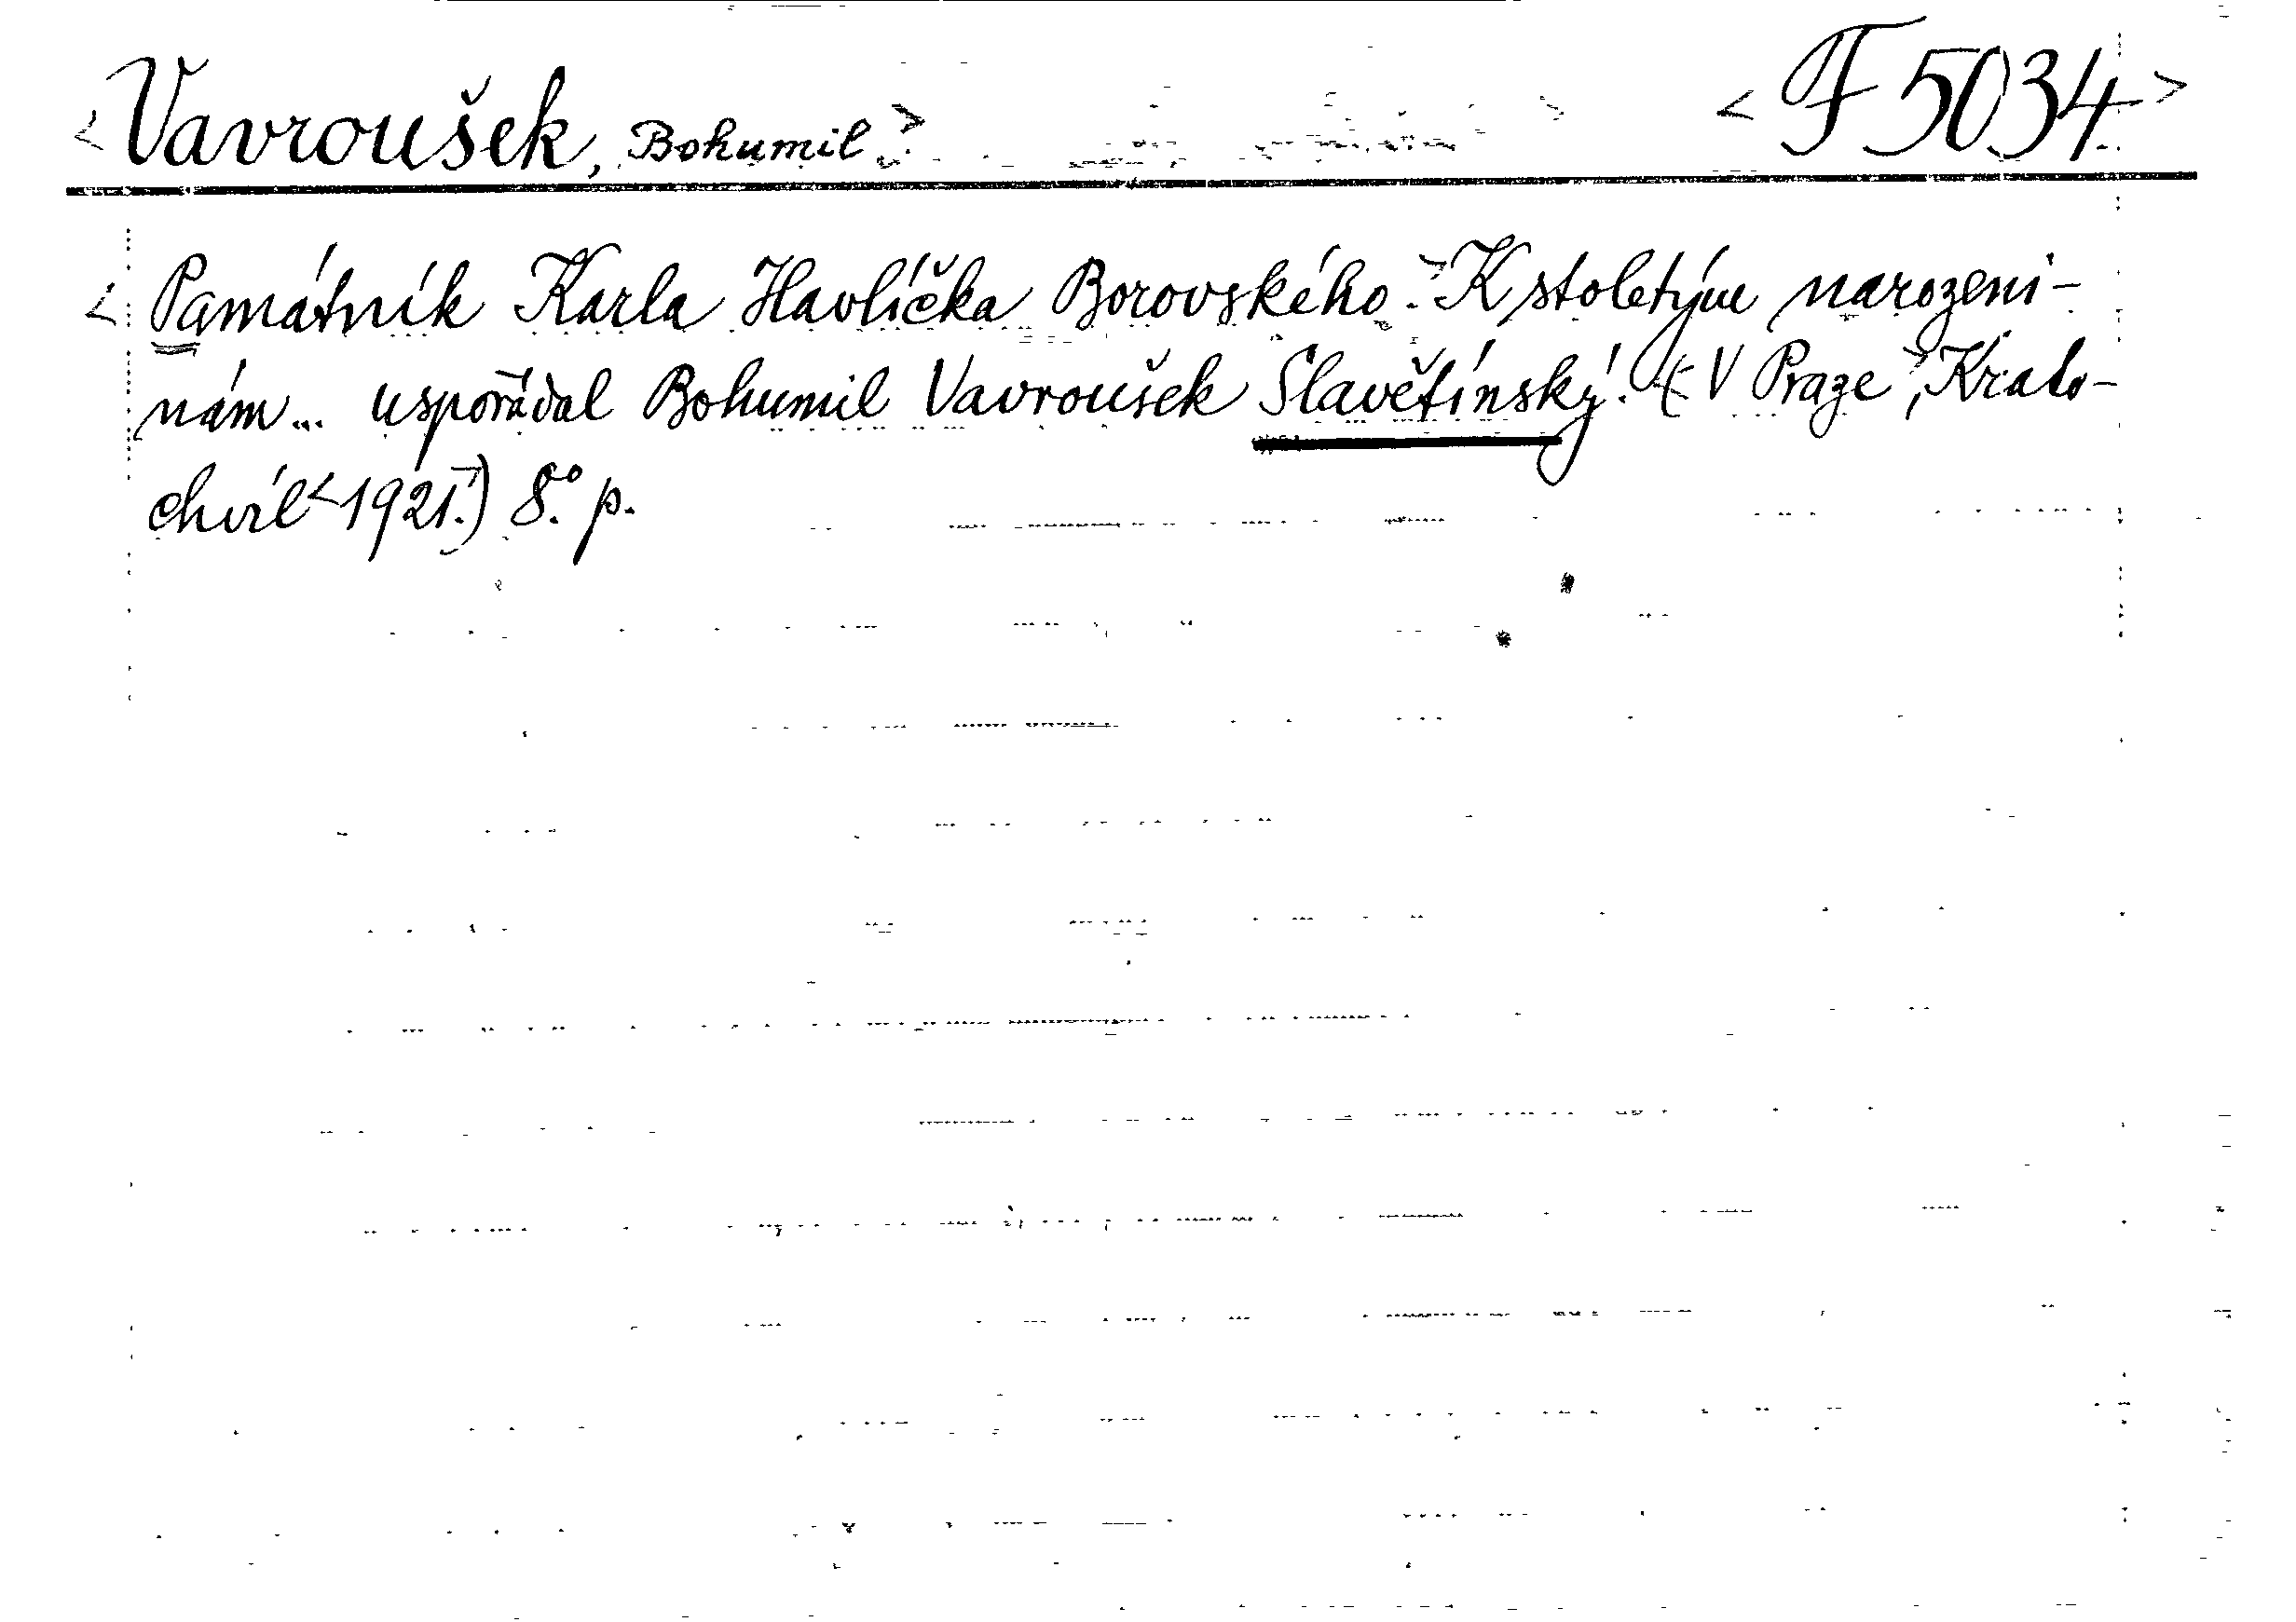 <Vavroušek, Bohumil> <F 5034>
<Památník Karla Havlíčka Borovského.> K stoletým narozeni-
nám... uspořádal Bohumil Vavroušek Slavětínský. (<V Praze>, Krato-
chvíl <1921.>) 8.° p.